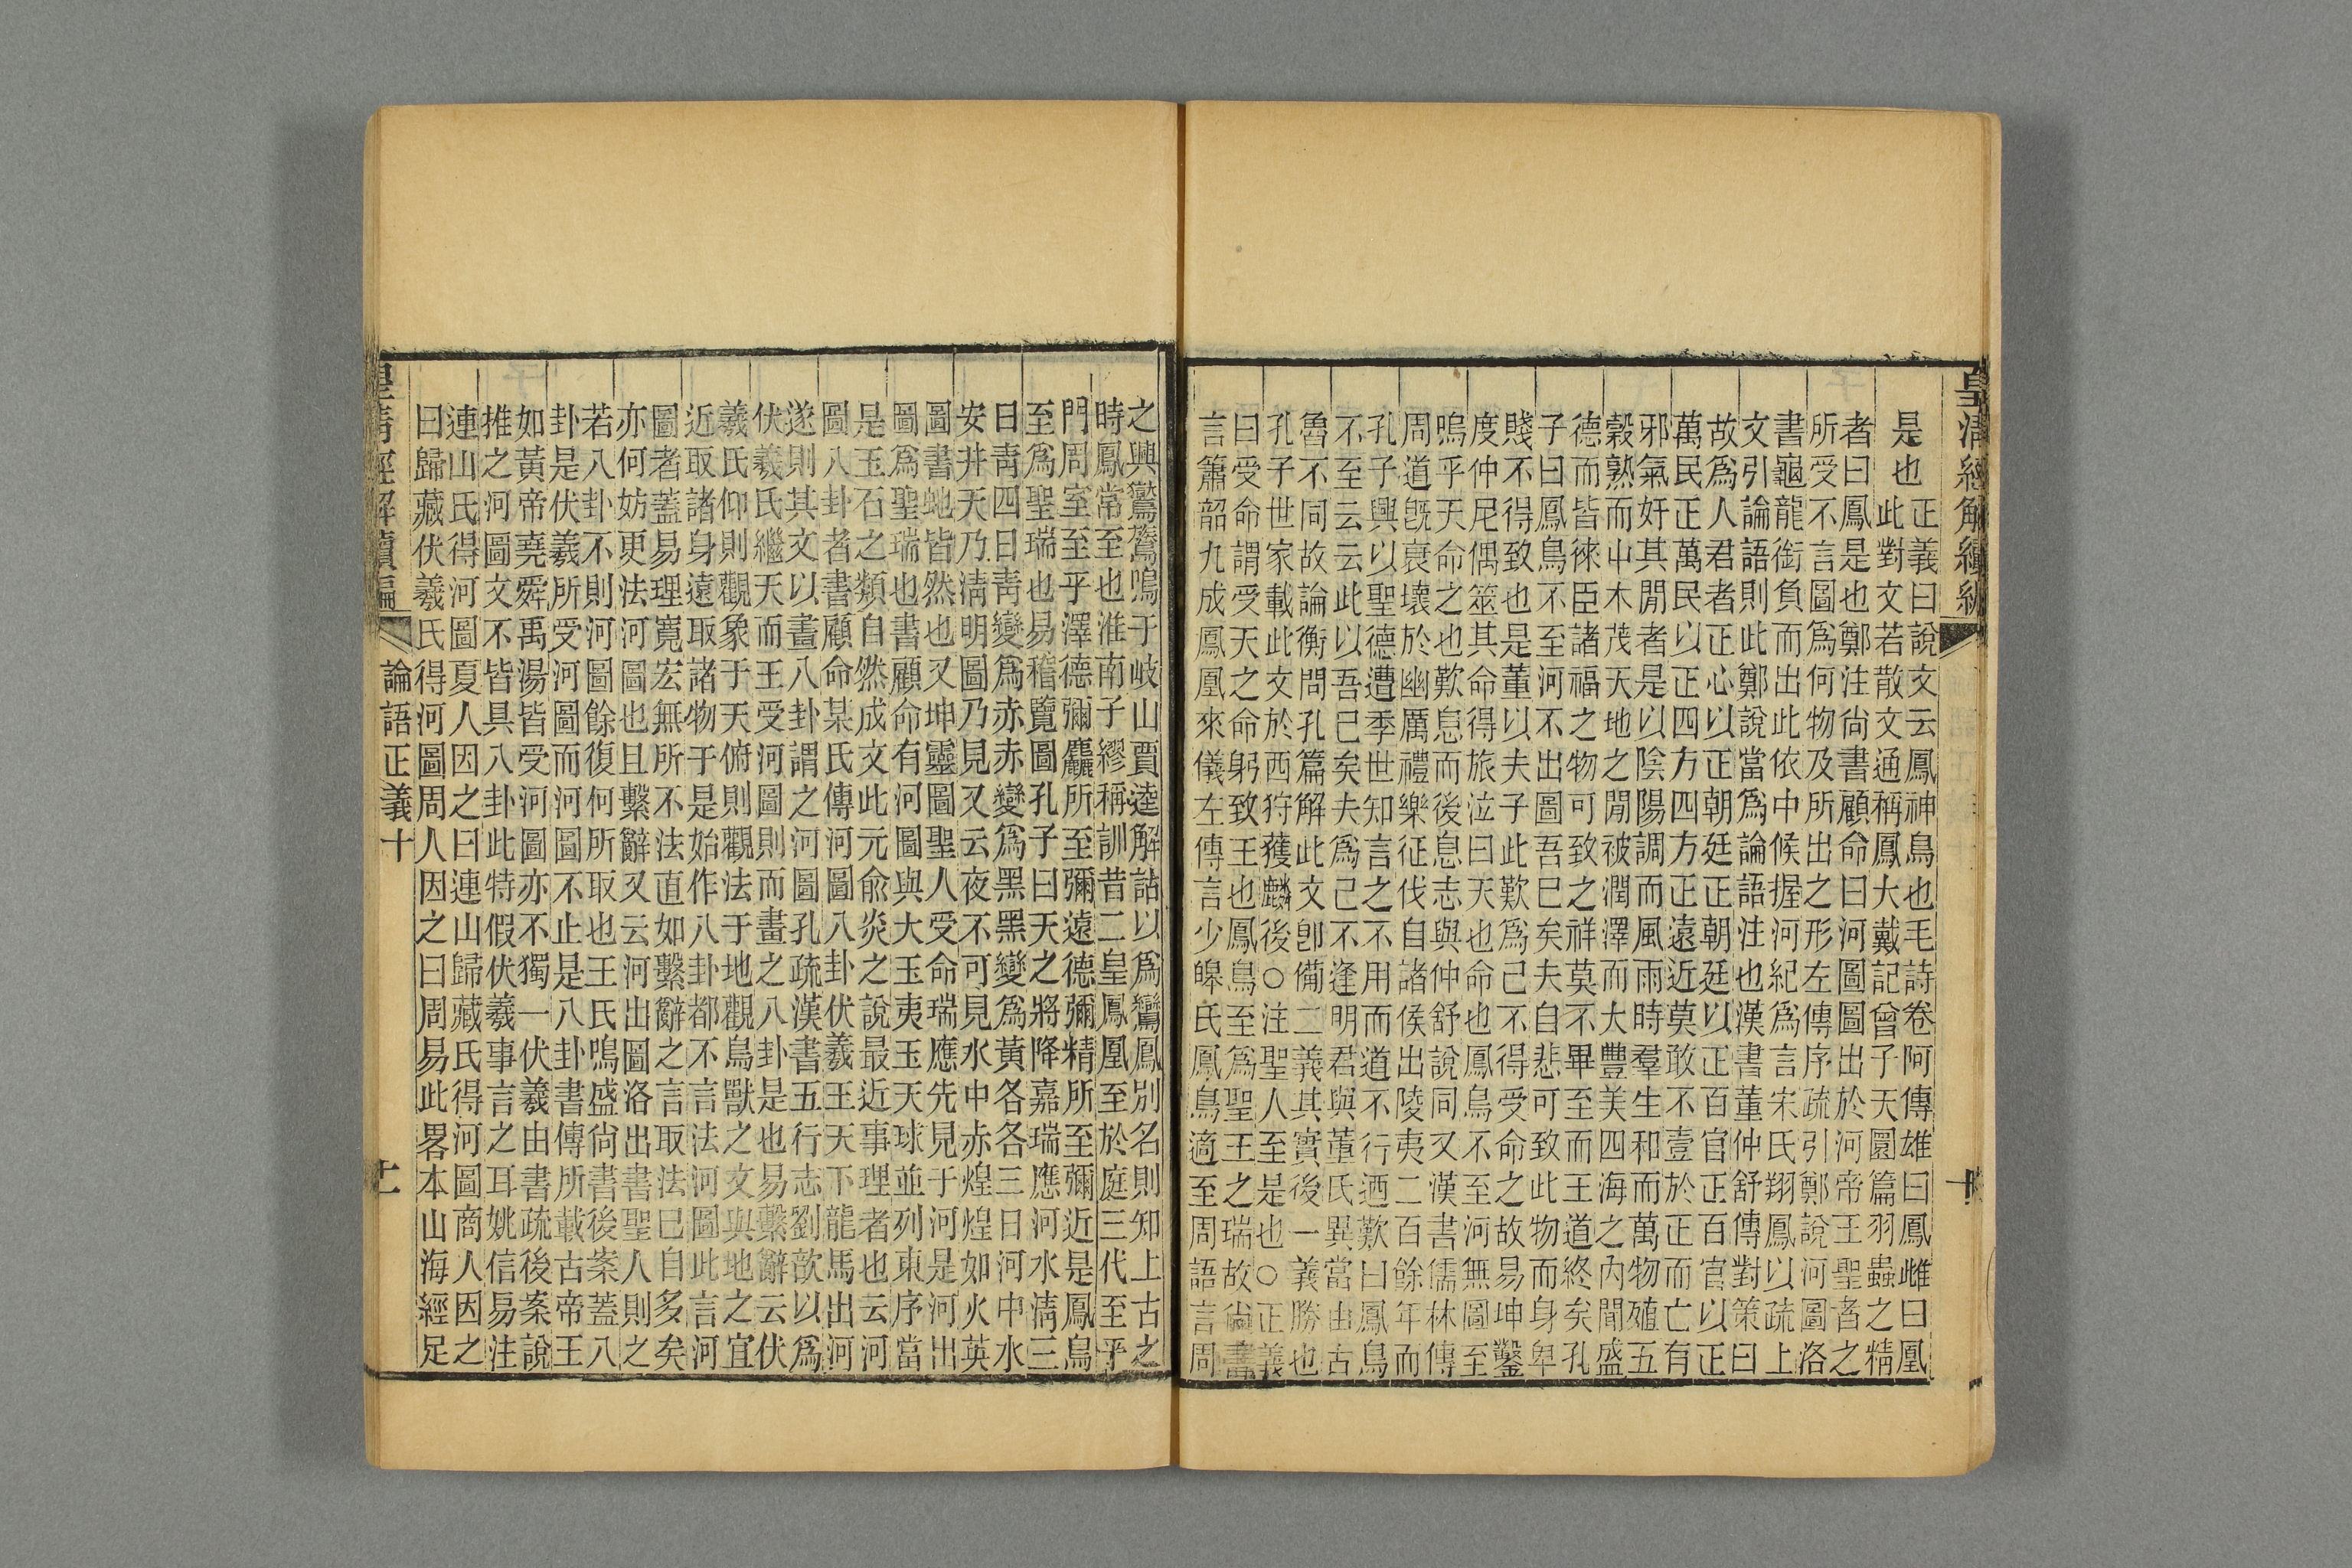 皇清經解續編
是也
正義曰說文云鳳神鳥也毛詩卷阿傳雄曰鳳雌曰凰
此對文若散文通稱鳳大戴記曾子天圜篇羽蟲之精
者曰鳳是也鄭注尚書顧命曰河圖圖出於河帝王聖者之
所受不言圖爲何物及所出之形左傳序疏引鄭說河圖洛
書龜龍銜負而出此依中候握河紀爲言宋氏翔鳳以疏上
文引論語則此鄭說當爲論語注也漢書董仲舒傳對策曰
故爲人君者正心以正朝廷正朝廷以正百官正百官以正
萬民正萬民以正四方四方正遠近莫敢不壹於正而亡有
邪氣奸其閒者是以陰陽調而風雨時羣生和而萬物殖五
穀熟而屮木茂天地之閒被潤澤而大豐美四海之內聞盛
德而皆徠臣諸福之物可致之祥莫不畢至而王道終矣孔
子曰鳳鳥不至河不出圖吾巳矣夫自悲可致此物而身卑
賤不得致也是董以夫子此歎爲己不得受命之故易坤鑿
度仲尼偶筮其命得旅泣曰天也命也鳳鳥不至河無圖至
嗚乎天命之也歎息而後息志與仲舒說同又漢書儒林傳
周道旣衰壞於幽厲禮樂征伐自諸侯出陵夷二百餘年而
孔子興以聖德遭季世知言之不用而道不行迺歎曰鳳鳥
不至云云此以吾已矣夫爲己不逢明君與董氏異當由古
魯不同故論衡問孔篇解此文卽備二義其實後一義勝也
孔子世家載此文於西狩獲麟後○注聖人至是也○正義
曰受命謂受天之命躬致王也鳳鳥至爲聖王之瑞故尚書
言簫韶九成鳳凰來儀左傳言少皞氏鳳鳥適至周語言周
之興鸑鷟鳴于岐山賈逵解詁以爲鸞鳳別名則知上古之
時鳳常至也淮南子繆稱訓昔二皇鳳凰至於庭三代至乎
門周室至乎澤德彌麤所至彌遠德彌精所至彌近是鳳鳥
至爲聖瑞也易稽覽圖孔子曰天之將降嘉瑞應河水淸三
日靑四日靑變爲赤赤變爲黑黑變爲黃各各三日河中水
安井天乃淸明圖乃見又云夜不可見水中赤煌煌如火英
圖書虵皆然也又坤靈圖聖人受命瑞應先見于河是河出
圖爲聖瑞也書顧命有河圖與大玉夷玉天球並列東序當
是玉石之類自然成文此元俞炎之說最近事理者也云河
圖八卦者書顧命某氏傳河圖八卦伏羲王天下龍馬出河
遂則其文以畫八卦謂之河圖孔疏漢書五行志劉歆以爲
伏羲氏繼天而王受河圖則而畫之八卦是也易繫辭云伏
羲氏仰則觀象于天俯則觀法于地觀鳥獸之文與地之宜
近取諸身遠取諸物于是始作八卦都不言法河圖此言河
圖者蓋易理寬宏無所不法直如繫辭之言取法已自多矣
亦何妨更法河圖也且繫辭又云河出圖洛出書聖人則之
若八卦不則河圖餘復何所取也王氏鳴盛尙書後案蓋八
卦是伏羲所受河圖而河圖不止是八卦書傳所載古帝王
如黃帝堯舜禹湯皆受河圖亦不獨一伏羲由書疏後案說
推之河圖文不皆具八卦此特假伏羲事言之耳姚信易注
連山氏得河圖夏人因之曰連山歸藏氏得河圖商人因之
曰歸藏伏羲氏得河圖周人因之曰周易此畧本山海經足
皇淸經解續編
論語正義十